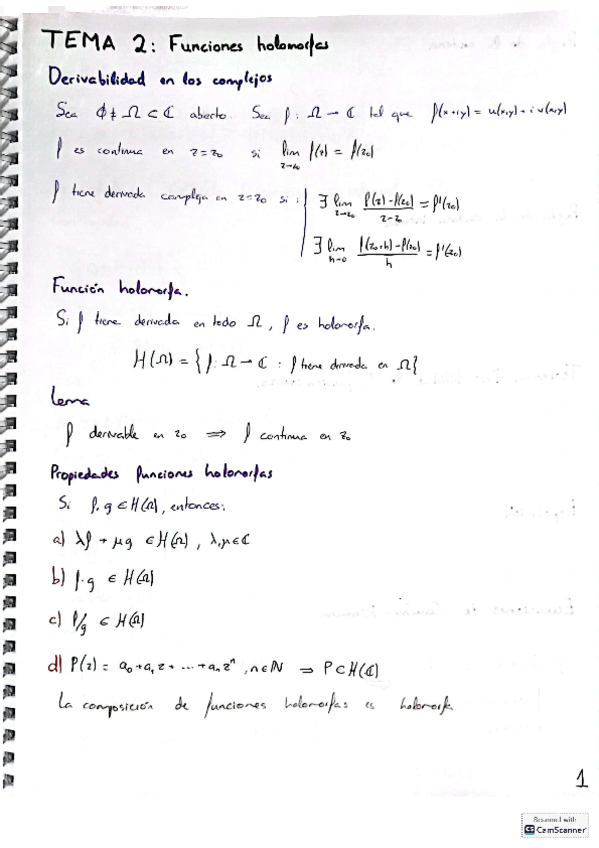 TEMA 2: Funciones holomorfas
Derivabilidad en los complejos
Sea ∅ ≠ Ω ⊂ ℂ abierto. Sea f: Ω → ℂ tal que f(x+iy) = u(x,y) + i v(x,y)
f es continua en z=z₀ si lim_{z→z₀} f(z) = f(z₀)
f tiene derivada compleja en z=z₀ si: ∃ lim_{z→z₀} (f(z)-f(z₀))/(z-z₀) = f'(z₀)
∃ lim_{h→0} (f(z₀+h)-f(z₀))/h = f'(z₀)
Función holomorfa.
Si f tiene derivada en todo Ω, f es holomorfa.
H(Ω) = {f: Ω → ℂ : f tiene derivada en Ω}
Lema
f derivable en z₀ ⟹ f continua en z₀
Propiedades funciones holomorfas
Si f, g ∈ H(Ω), entonces:
a) λf + μg ∈ H(Ω), λ,μ ∈ ℂ
b) f·g ∈ H(Ω)
c) f/g ∈ H(Ω)
d) P(z) = a₀+a₁z+...+aₙzⁿ, n∈ℕ ⟹ P ⊂ H(ℂ)
La composición de funciones holomorfas es holomorfa
1
Scanned with
CS CamScanner